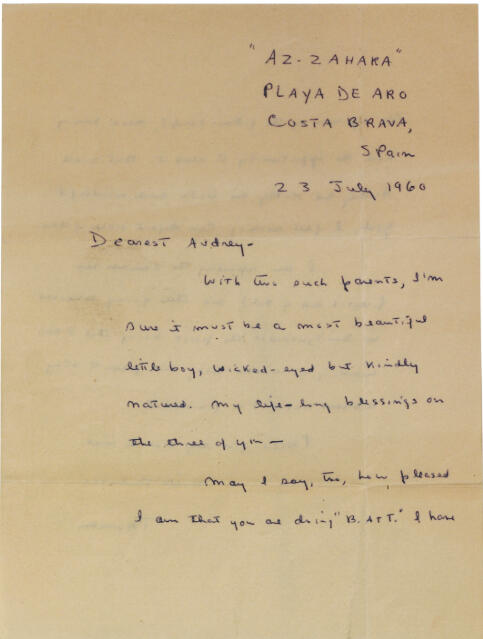 "AZ-ZAHARA"
PLAYA DE ARO
COSTA BRAVA,
Spain
23 July 1960
Dearest Audrey-
With two such parents, I'm
sure it must be a most beautiful
little boy, wicked-eyed but kindly
natured. My life-long blessings on
the three of you—
May I say, too, how pleased
I am that you are doing "B. at T." I have